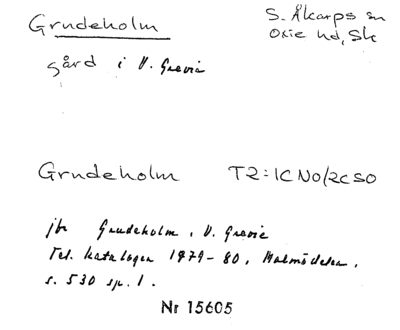 Grudeholm
S. Åkarps sn
Oxie hd, Sk
gård i V. Grevie
Grudeholm T2:1CNO/2CSO
jfr Grudeholm, V. Grevie
Tel. katalogen 1979-80, Malmödelen,
s. 530 sp. 1.
Nr 15605